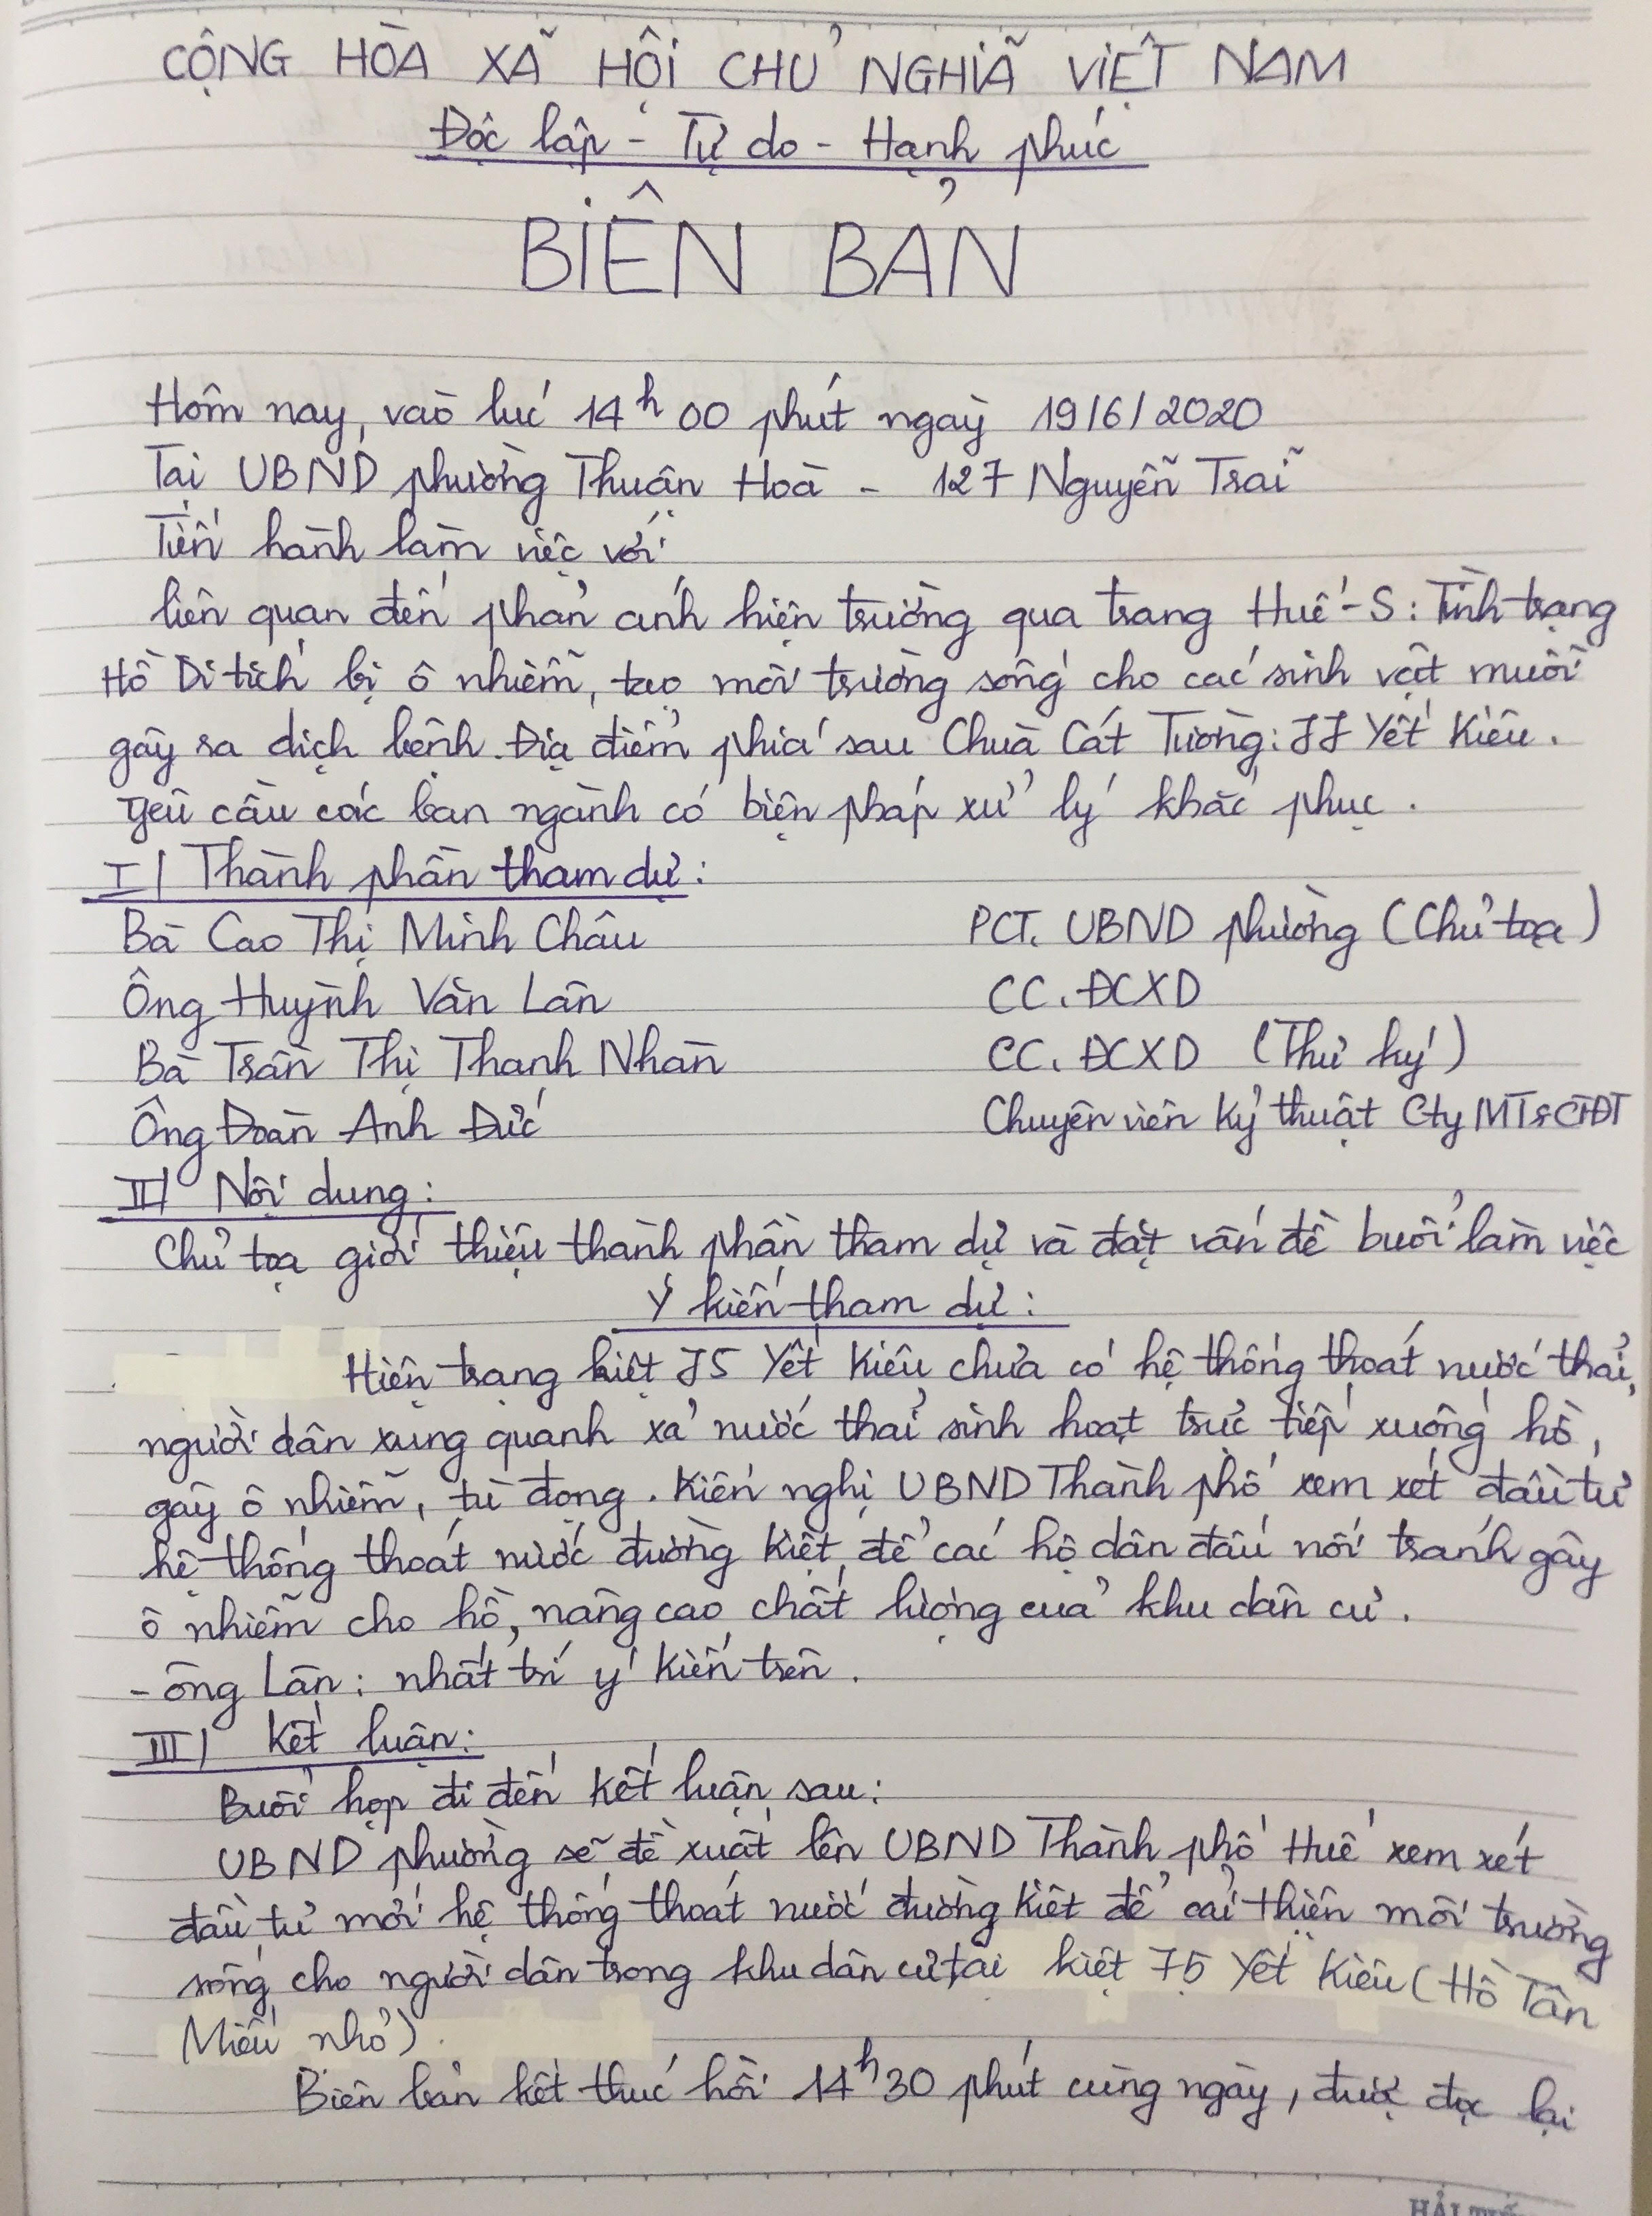 CỘNG HÒA XÃ HỘI CHỦ NGHĨA VIỆT NAM
Độc lập - Tự do - Hạnh phúc
BIÊN BẢN
Hôm nay, vào lúc 14h 00 phút ngày 19/6/2020
Tại UBND phường Thuận Hoà - 127 Nguyễn Trãi
Tiến hành làm việc với
liên quan đến phản ánh hiện trường qua trang Huế-S: Tình trạng
Hồ Di tích bị ô nhiễm, tạo môi trường sống cho các sinh vật muỗi
gây ra dịch bệnh. Địa điểm phía sau Chùa Cát Tường: 77 Yết Kiêu.
yêu cầu các ban ngành có biện pháp xử lý khắc phục.
I/ Thành phần tham dự:
Bà Cao Thị Minh Châu PCT. UBND phường (Chủ tọa)
Ông Huỳnh Văn Lân CC. ĐCXD
Bà Trần Thị Thanh Nhàn CC. ĐCXD (Thư ký)
Ông Đoàn Anh Đức Chuyên viên Kỹ thuật Cty MT&CTĐT
II/ Nội dung:
Chủ tọa giới thiệu thành phần tham dự và đặt vấn đề buổi làm việc
Ý kiến tham dự:
Hiện trạng kiệt 75 Yết Kiêu chưa có hệ thống thoát nước thải,
người dân xung quanh xả nước thải sinh hoạt trực tiếp xuống hồ,
gây ô nhiễm, tù đọng. Kiến nghị UBND Thành phố xem xét đầu tư
hệ thống thoát nước đường kiệt để các hộ dân đấu nối tránh gây
ô nhiễm cho hồ, nâng cao chất lượng của khu dân cư.
- ông Lân: nhất trí ý kiến trên.
III/ Kết luận:
Buổi họp đi đến kết luận sau:
UBND phường sẽ đề xuất lên UBND Thành phố Huế xem xét
đầu tư mới hệ thống thoát nước đường kiệt để cải thiện môi trường
sống cho người dân trong khu dân cư tại kiệt 75 Yết Kiêu (Hồ Tân
Miếu nhỏ)
Biên bản kết thúc hồi 14h30 phút cùng ngày, được đọc lại